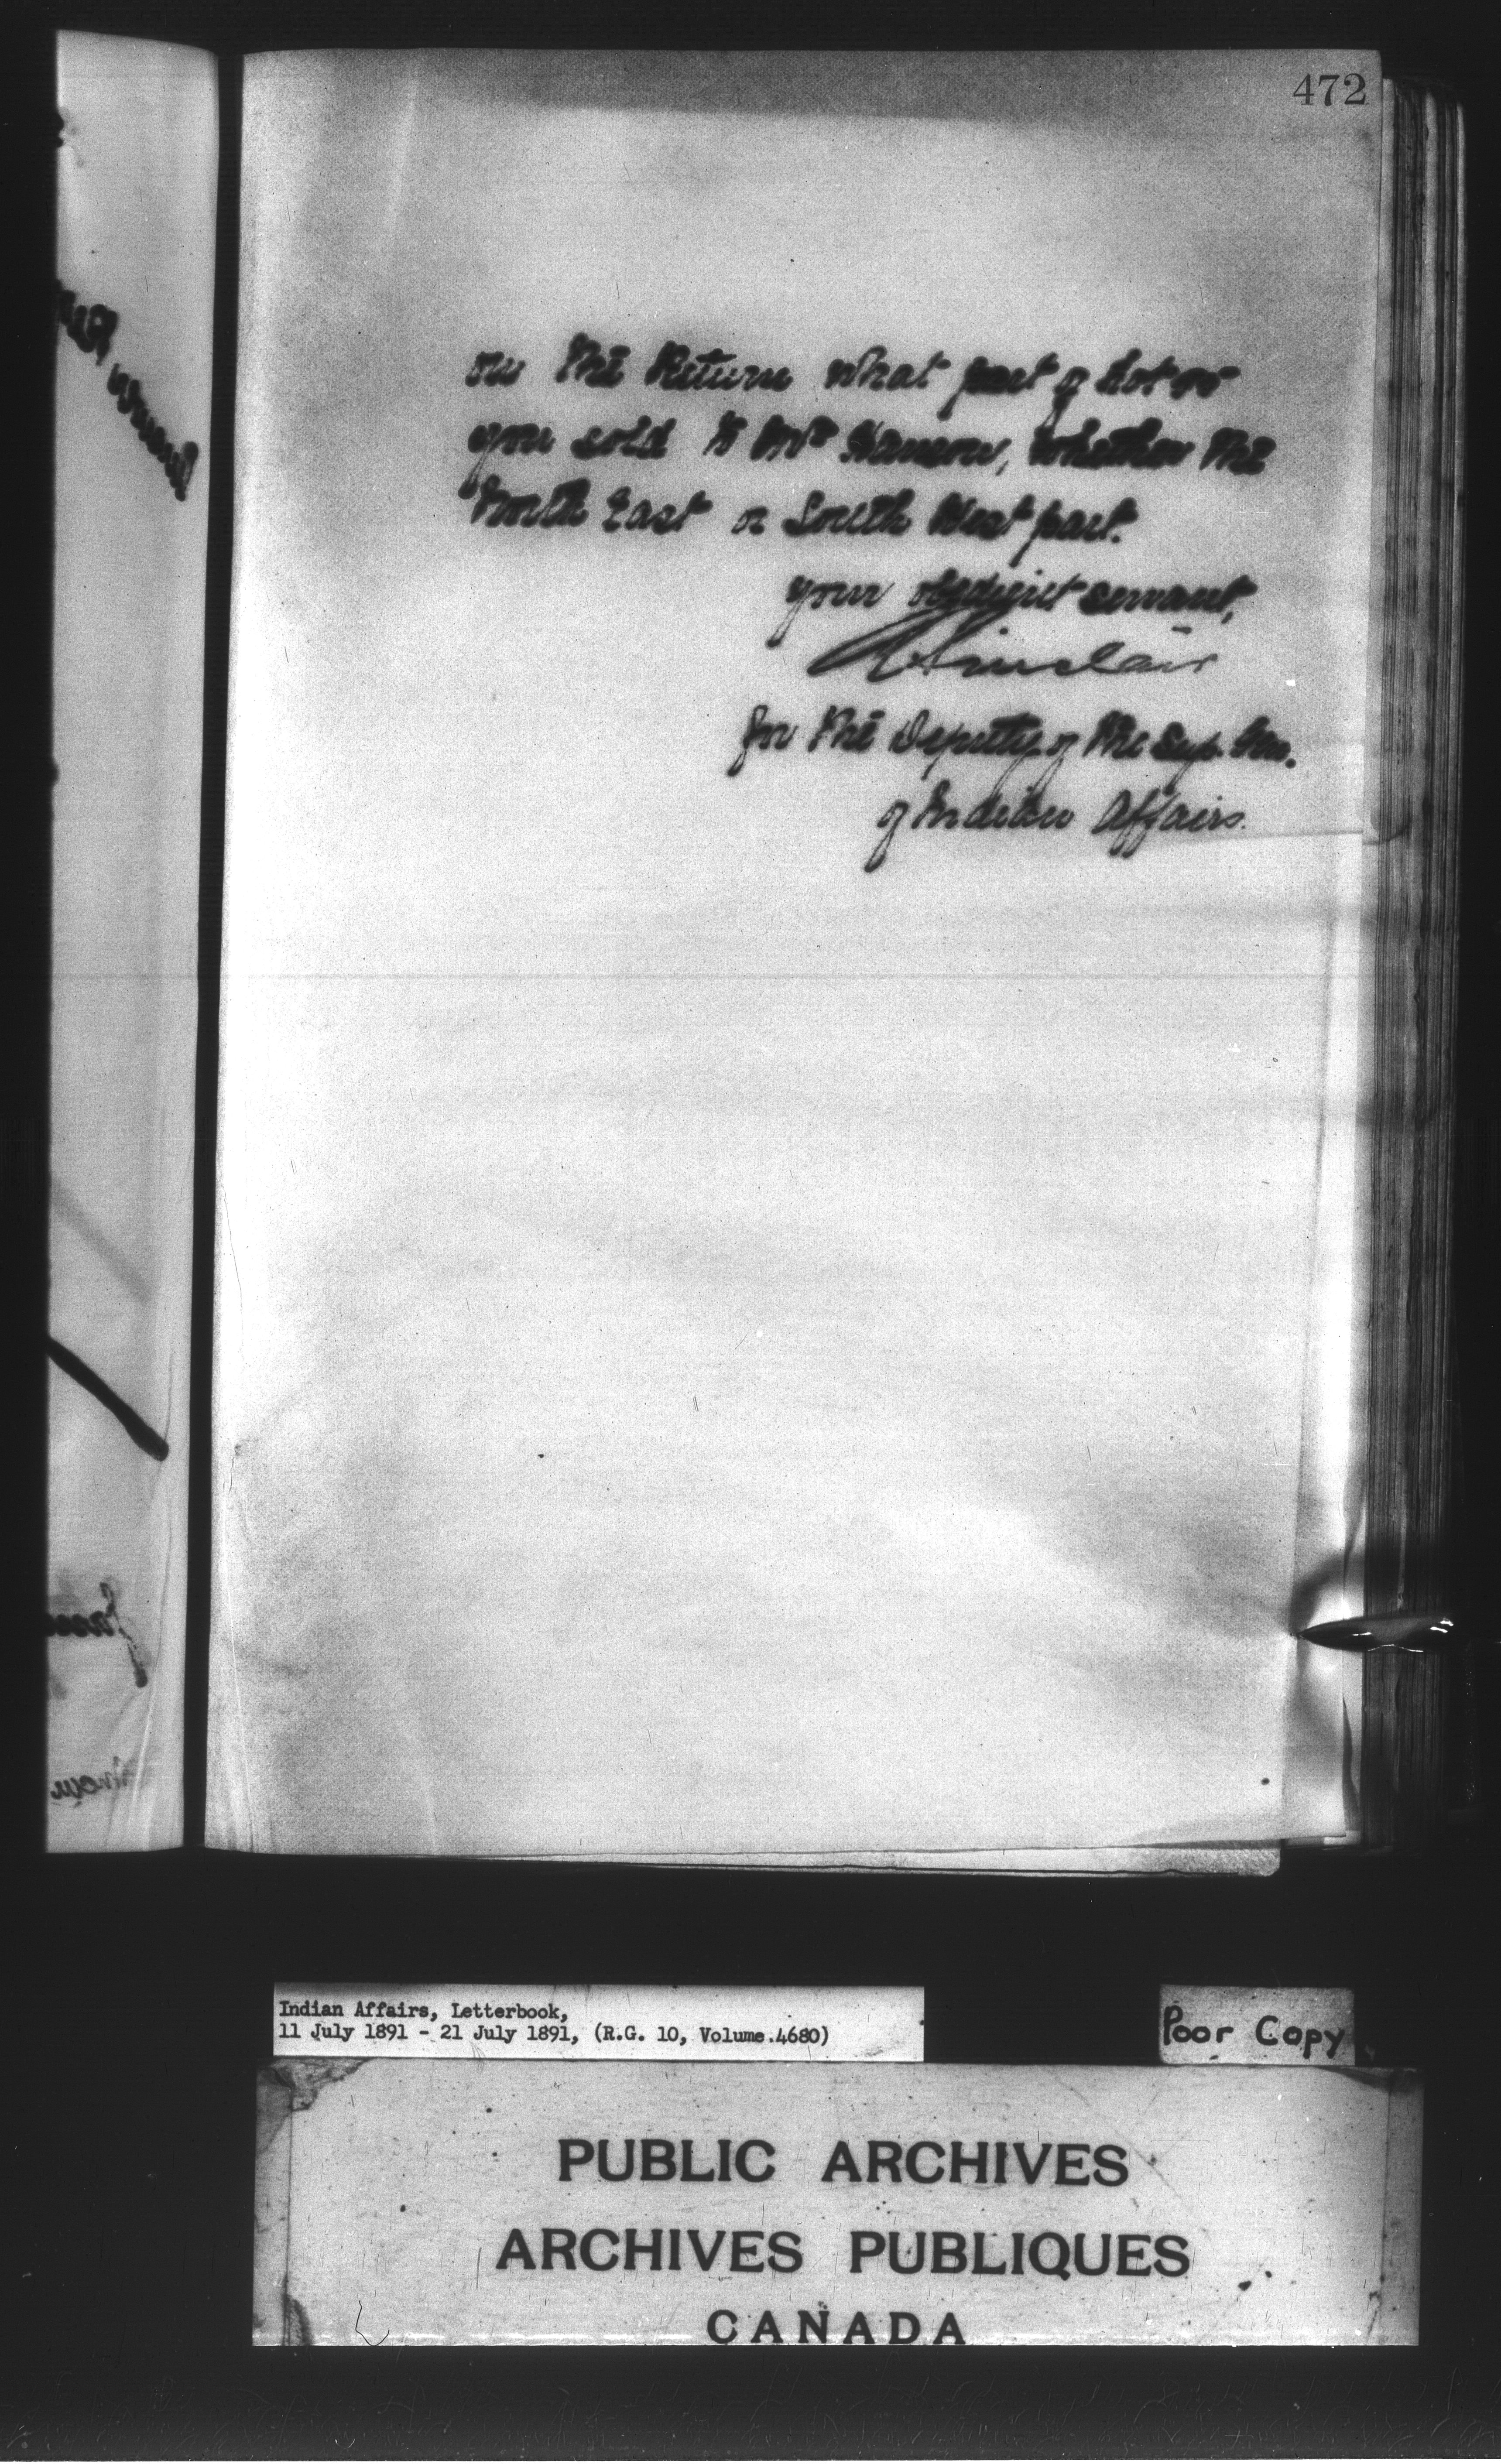 472
on the Return what part of Lot
you sold to Mr Hanson, whether the
North East or South West part.
your obedient servant,
Sinclair
for the Deputy of the Sup. Gen.
of Indian Affairs.
Indian Affairs, Letterbook,
11 July 1891 - 21 July 1891, (R.G. 10, Volume 4680)
Poor Copy
PUBLIC ARCHIVES
ARCHIVES PUBLIQUES
CANADA